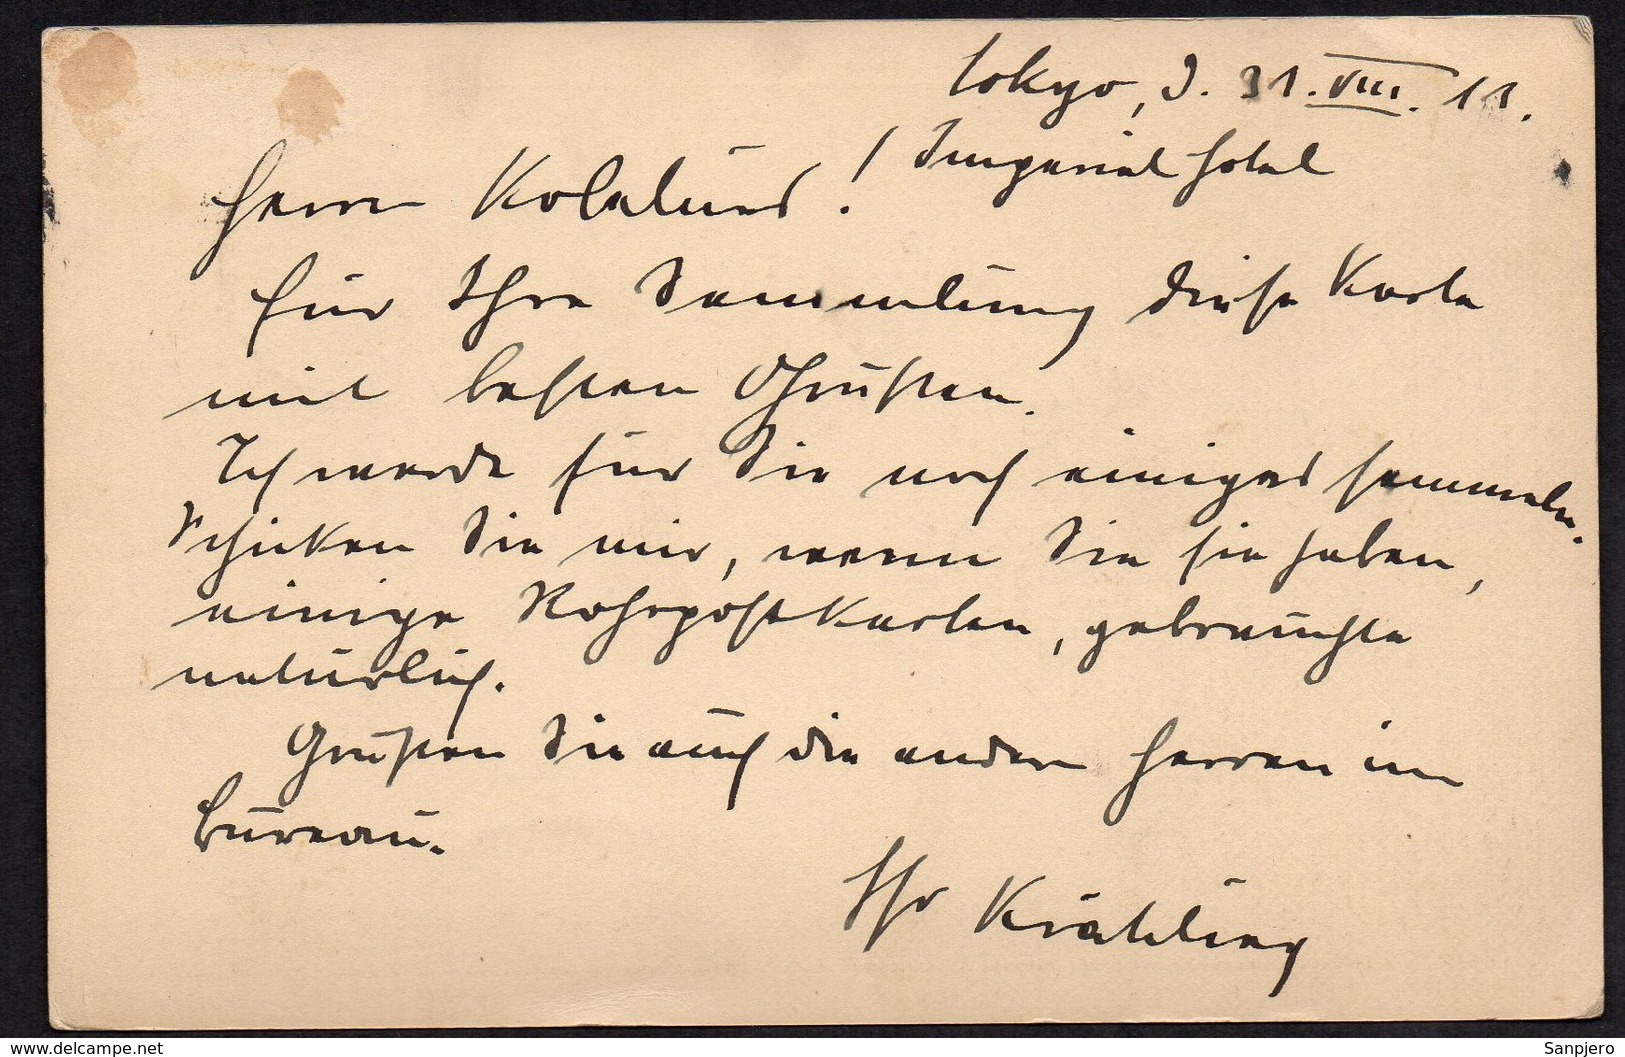 Tokyo, d. 31. VIII. 11.
Imperial Hotel
Herrn !
Für Ihre Sammlung diese Karte
mit besten Grüßen.
Ich werde für Sie noch einiges sammeln.
Schicken Sie mir, wenn Sie sie haben,
einige Rohrpostkarten, gebrauchte
natürlich.
Grüßen Sie auch die andern Herren im
Bureau.
Ihr
Sanpjero
www.delcampe.net